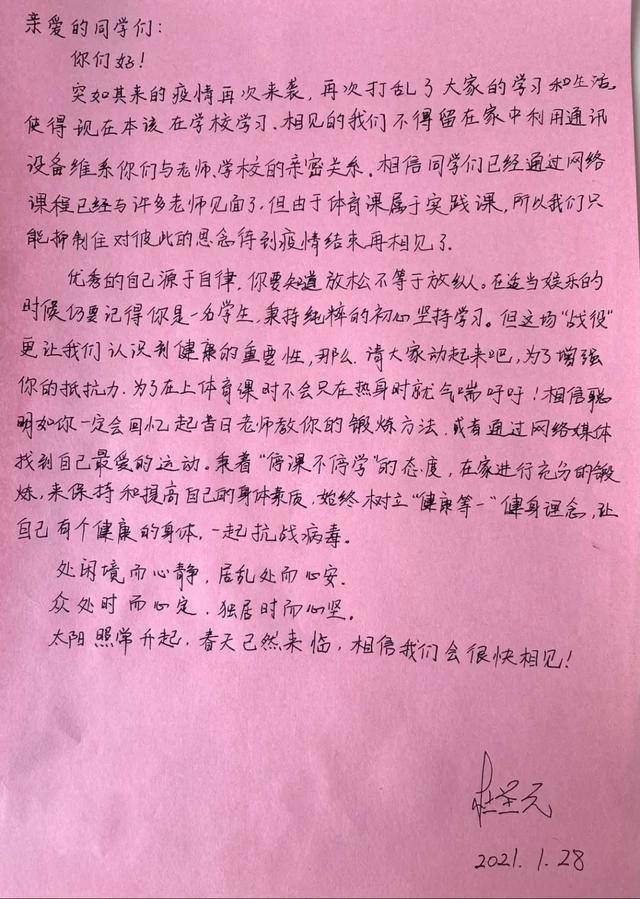 亲爱的同学们:
你们好!
突如其来的疫情再次来袭,再次打乱了大家的学习和生活,
使得现在本该在学校学习、相见的我们不得留在家中利用通讯
设备维系你们与老师、学校的亲密关系。相信同学们已经通过网络
课程已经与许多老师见面了,但由于体育课属于实践课,所以我们只
能抑制住对彼此的思念待到疫情结束再相见了。
优秀的自己源于自律,你要知道放松不等于放纵。在适当娱乐的
时候仍要记得你是一名学生,秉持纯粹的初心坚持学习。但这场“战役”
更让我们认识到健康的重要性,那么,请大家动起来吧,为了增强
你的抵抗力,为了在上体育课时不会只在热身时就气喘吁吁!相信聪
明如你一定会回忆起昔日老师教你的锻炼方法,或者通过网络媒体
找到自己最爱的运动。秉着“停课不停学”的态度,在家进行充分的锻
炼,来保持和提高自己的身体素质,始终树立“健康第一”健身理念,让
自己有个健康的身体,一起抗战病毒。
处闲境而心静,居乱处而心安。
众处时而心定,独居时而心坚。
太阳照常升起,春天已然来临,相信我们会很快相见!
杜圣元
2021.1.28